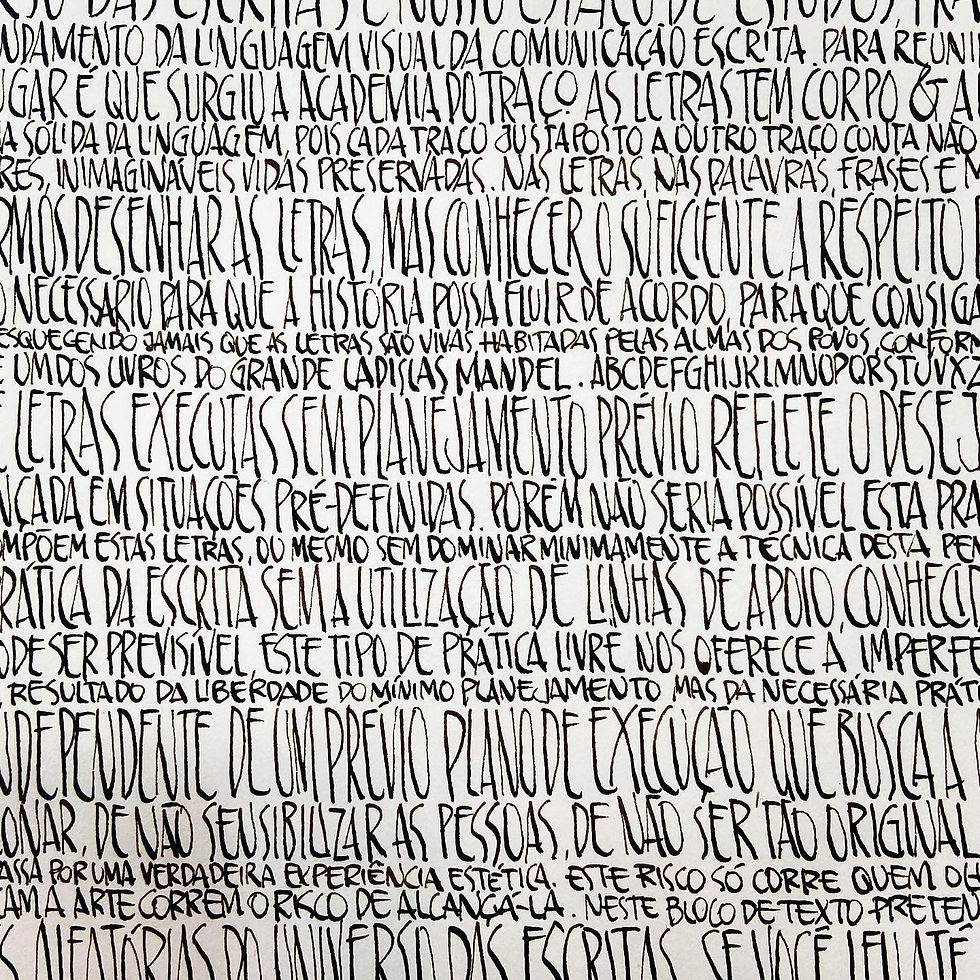 DAS ESCRITAS E NOSSO ESPAÇO DE ESTUDOS,
NDAMENTO DA LINGUAGEM VISUAL DA COMUNICAÇÃO ESCRITA. PARA REUNI
UGAR É QUE SURGIU A ACADEMIA DO TRAÇO. AS LETRAS TEM CORPO & A
A SÓLIDA DA LINGUAGEM, POIS CADA TRAÇO JUSTAPOSTO A OUTRO TRAÇO CONTA NÃO
RES, INIMAGINÁVEIS VIDAS PRESERVADAS. NAS LETRAS, NAS PALAVRAS, FRASES E
RMOS DESENHAR AS LETRAS, MAS CONHECER O SUFICIENTE A RESPEITO
O NECESSÁRIO PARA QUE A HISTÓRIA POSSA FLUIR DE ACORDO, PARA QUE CONSIGA
ESQUECENDO JAMAIS QUE AS LETRAS SÃO VIVAS HABITADAS PELAS ALMAS DOS POVOS, CONFORM
E UM DOS LIVROS DO GRANDE LADISLAS MANDEL. ABCDEFGHIJKLMNOPQRSTUVXZ
E LETRAS EXECUTAS SEM PLANEJAMENTO PRÉVIO REFLETE O DESEJ
NÇADA EM SITUAÇÕES PRÉ-DEFINIDAS. PORÉM NÃO SERIA POSSÍVEL ESTA PRA
MPÕEM ESTAS LETRAS, OU MESMO SEM DOMINAR MINIMAMENTE A TÉCNICA DESTA PEN
RÁTICA DA ESCRITA SEM A UTILIZAÇÃO DE LINHAS DE APOIO, CONHECI
O DE SER PREVISÍVEL, ESTE TIPO DE PRÁTICA LIVRE NOS OFERECE A IMPERFE
RESULTADO DA LIBERDADE DO MÍNIMO PLANEJAMENTO MAS DA NECESSÁRIA PRÁT
NDEPENDENTE DE UM PRÉVIO PLANO DE EXECUÇÃO QUE BUSCA A
IONAR, DE NÃO SENSIBILIZAR AS PESSOAS, DE NÃO SER TÃO ORIGINAL
ASSA POR UMA VERDADEIRA EXPERIÊNCIA ESTÉTICA. ESTE RISCO SÓ CORRE QUEM
CAM A ARTE CORREM O RISCO DE ALCANÇÁ-LA. NESTE BLOCO DE TEXTO PRETEN
S ALEATÓRIAS DO UNIVERSO DAS ESCRITAS. SE VOCÊ LEU ATÉ